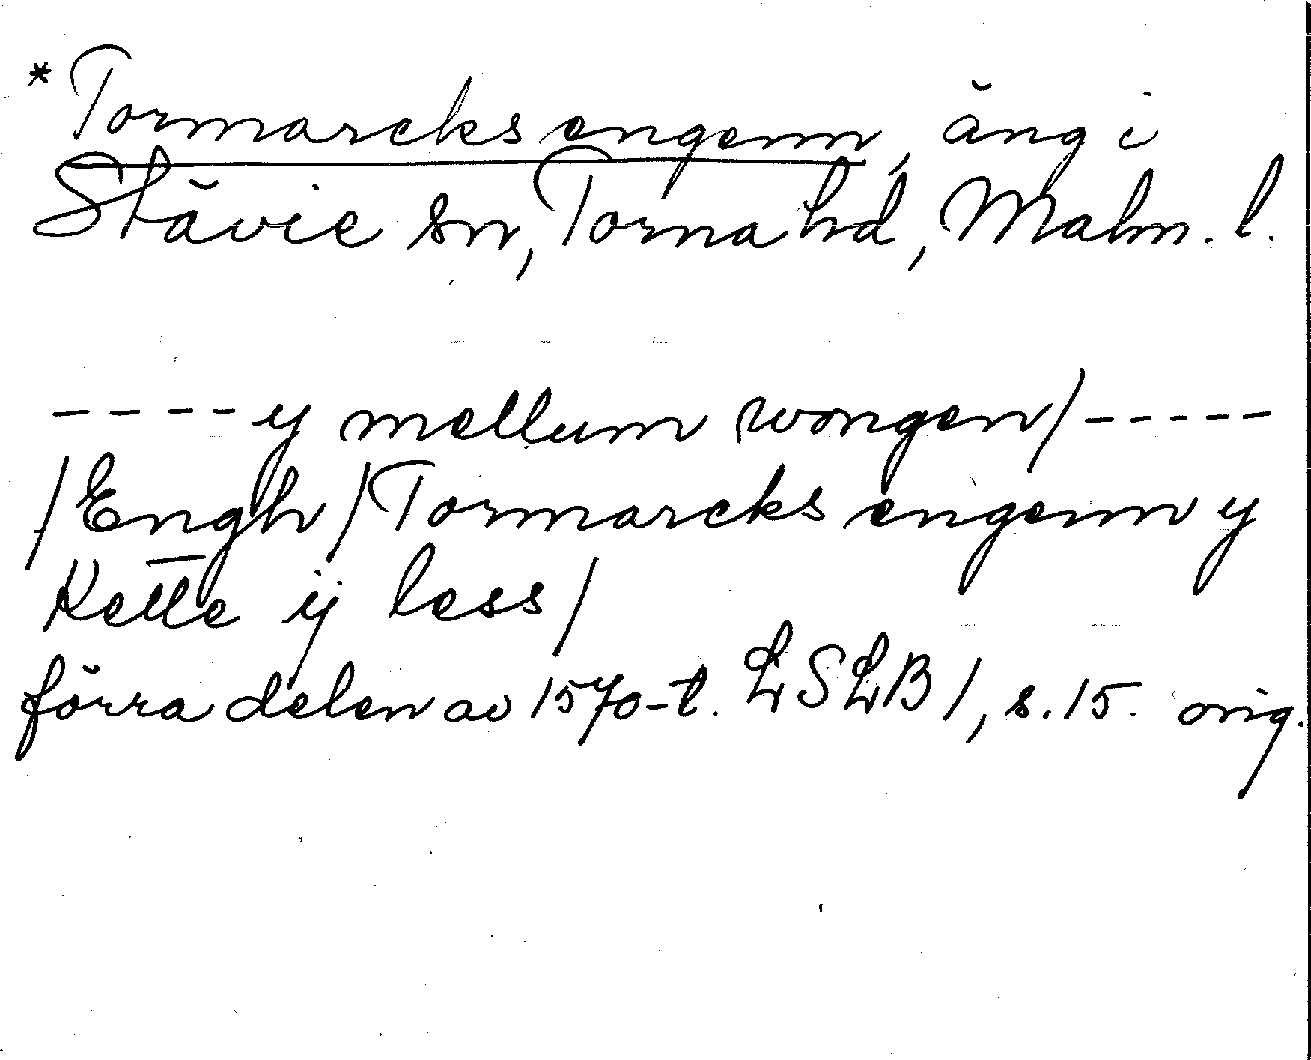 *Tormarcks engenn, äng i
Stävie sn, Torna hd, Malm. l.
----y mellum wongen/-----
/Engh/Tormarcks engenn y
Kette ij less/
förra delen av 1570-t. LSLB1, s. 15. orig.